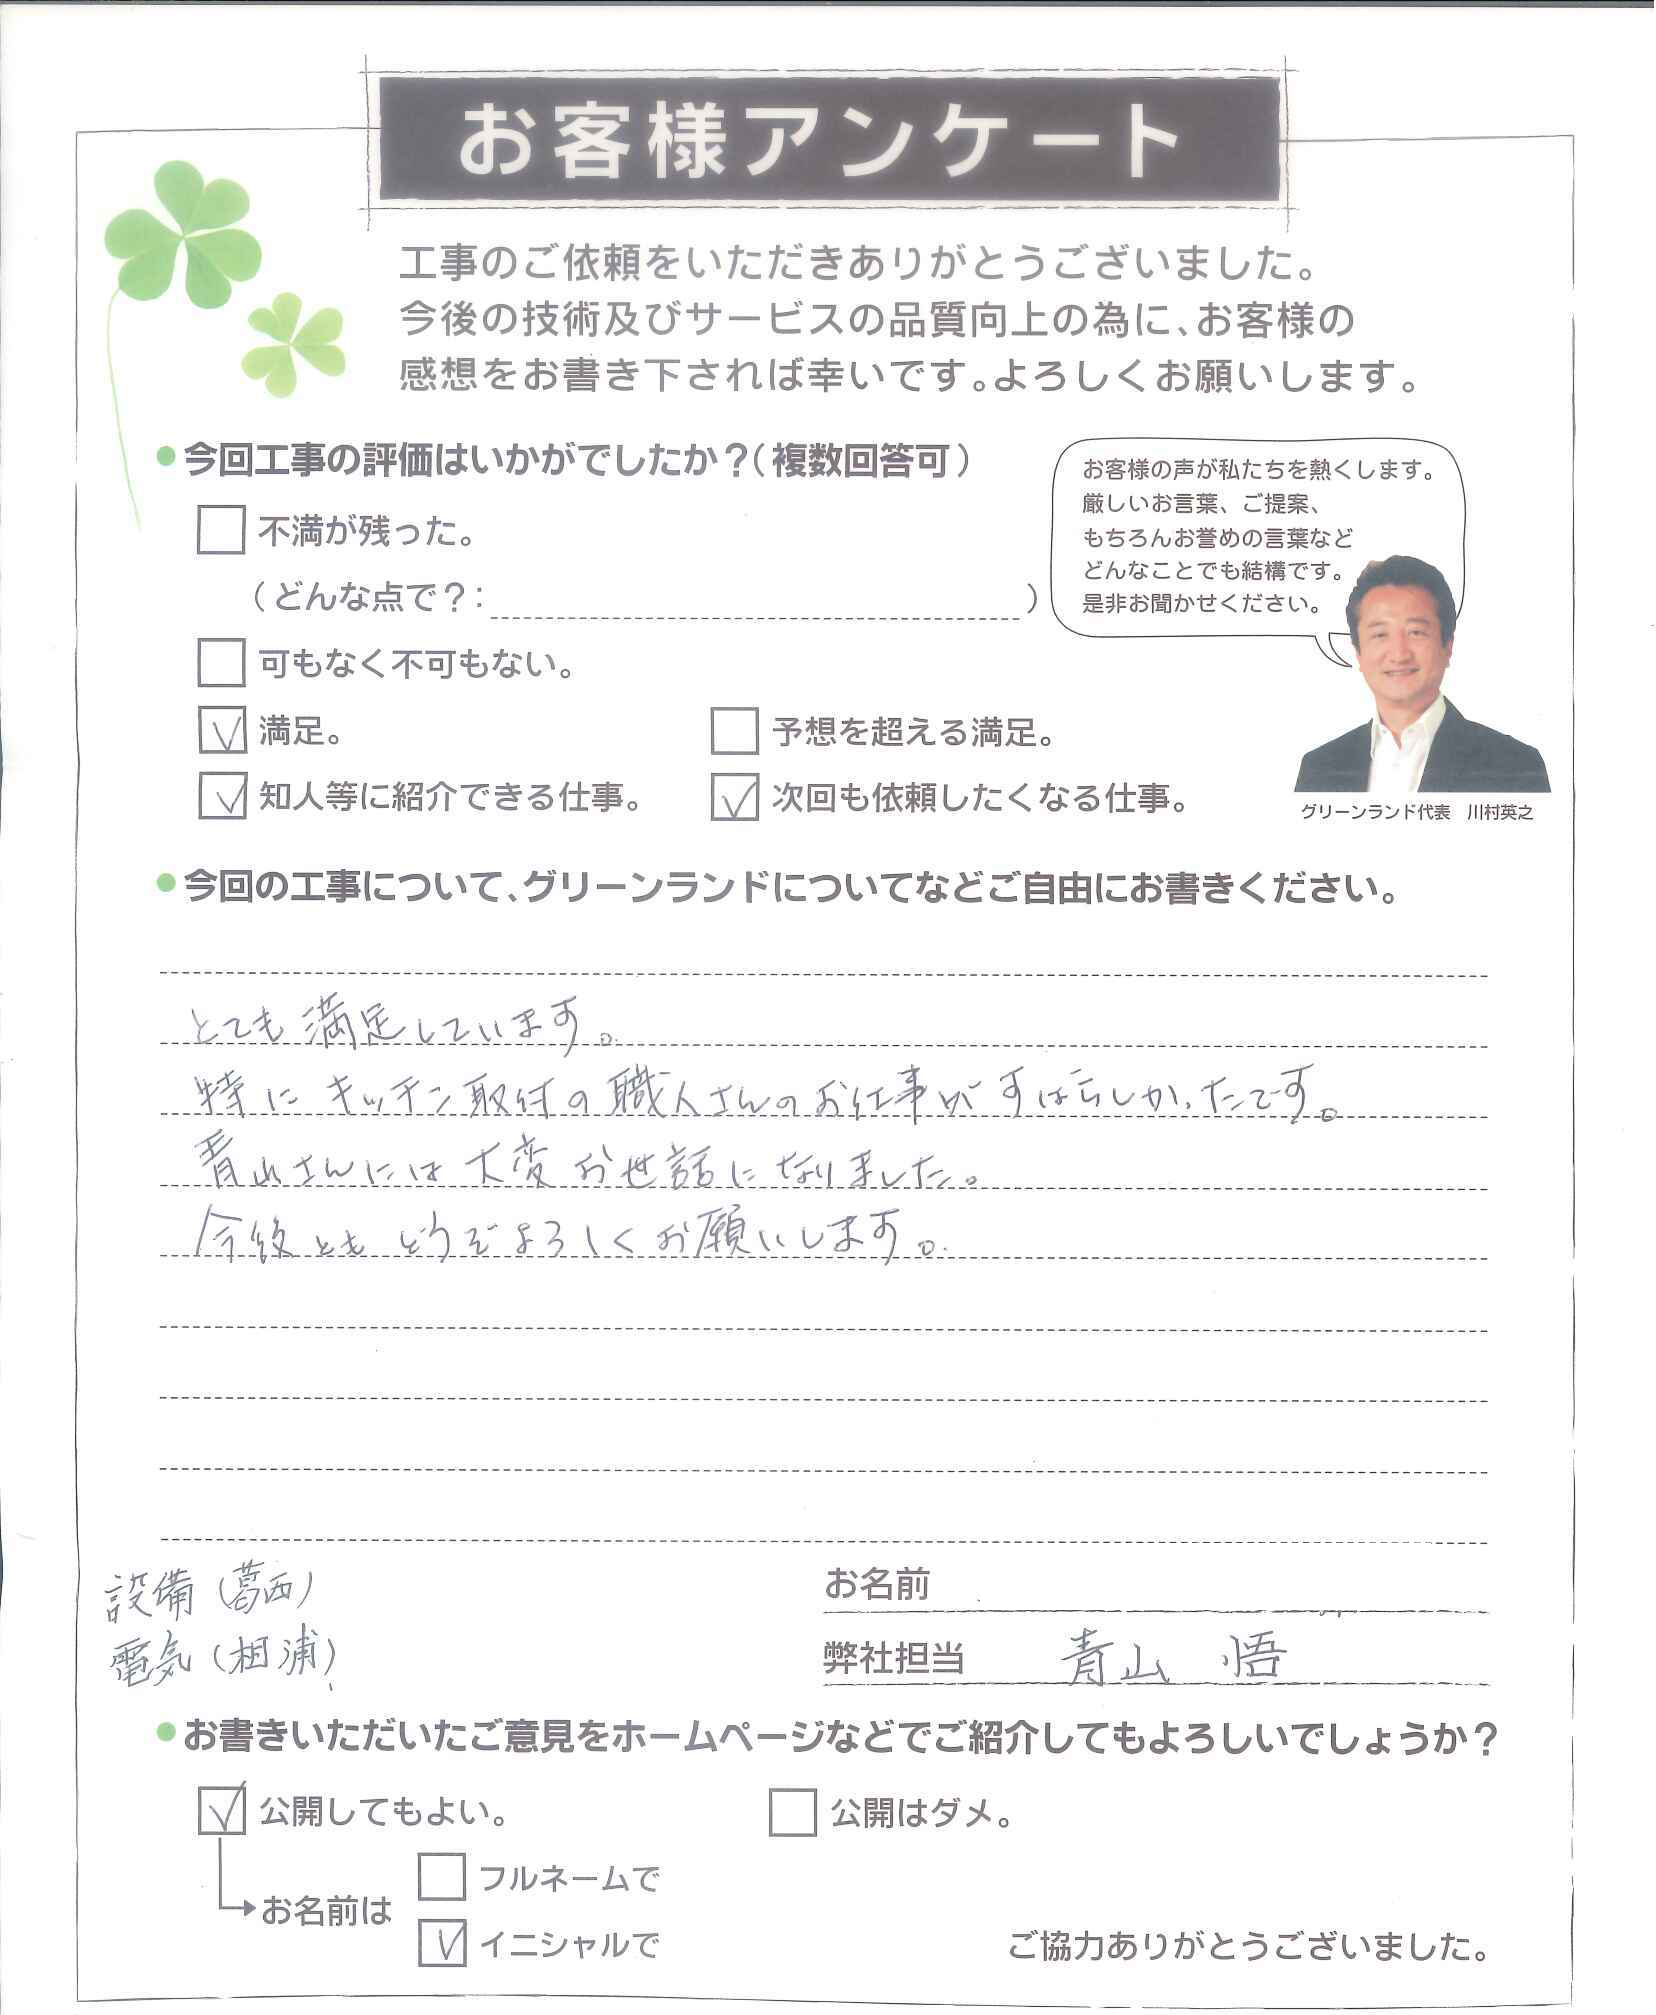 お客様アンケート
工事のご依頼をいただきありがとうございました。
今後の技術及びサービスの品質向上の為に、お客様の
感想をお書き下されば幸いです。よろしくお願いします。
今回工事の評価はいかがでしたか？（複数回答可）
不満が残った。
（どんな点で？：　　）
可もなく不可もない。
満足。
予想を超える満足。
知人等に紹介できる仕事。
次回も依頼したくなる仕事。
お客様の声が私たちを熱くします。
厳しいお言葉、ご提案、
もちろんお誉めの言葉など
どんなことでも結構です。
是非お聞かせください。
グリーンランド代表　川村英之
今回の工事について、グリーンランドについてなどご自由にお書きください。
とても満足しています。
特にキッチン取付の職人さんのお仕事がすばらしかったです。
青山さんには大変お世話になりました。
今後ともどうぞよろしくお願いします。
設備（葛西）
電気（相浦）
お名前
弊社担当　青山　悟
お書きいただいたご意見をホームページなどでご紹介してもよろしいでしょうか？
公開してもよい。
公開はダメ。
お名前は
フルネームで
イニシャルで
ご協力ありがとうございました。